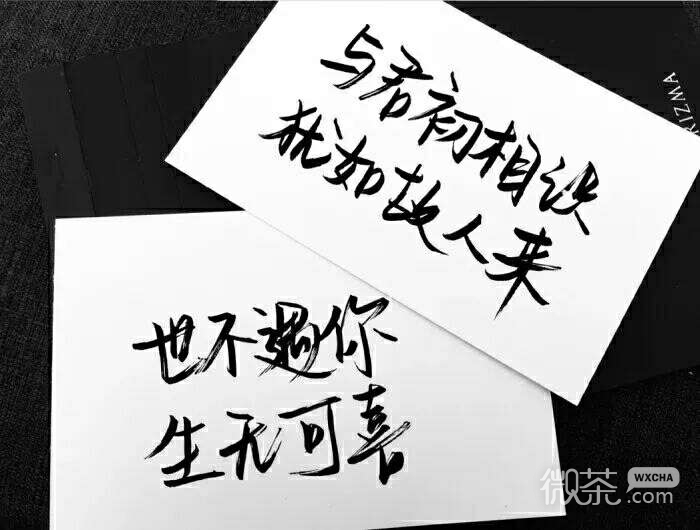 与君初相识
犹如故人来
也不遇你
生无可喜
KIZMA
微茶
WXCHA
.com